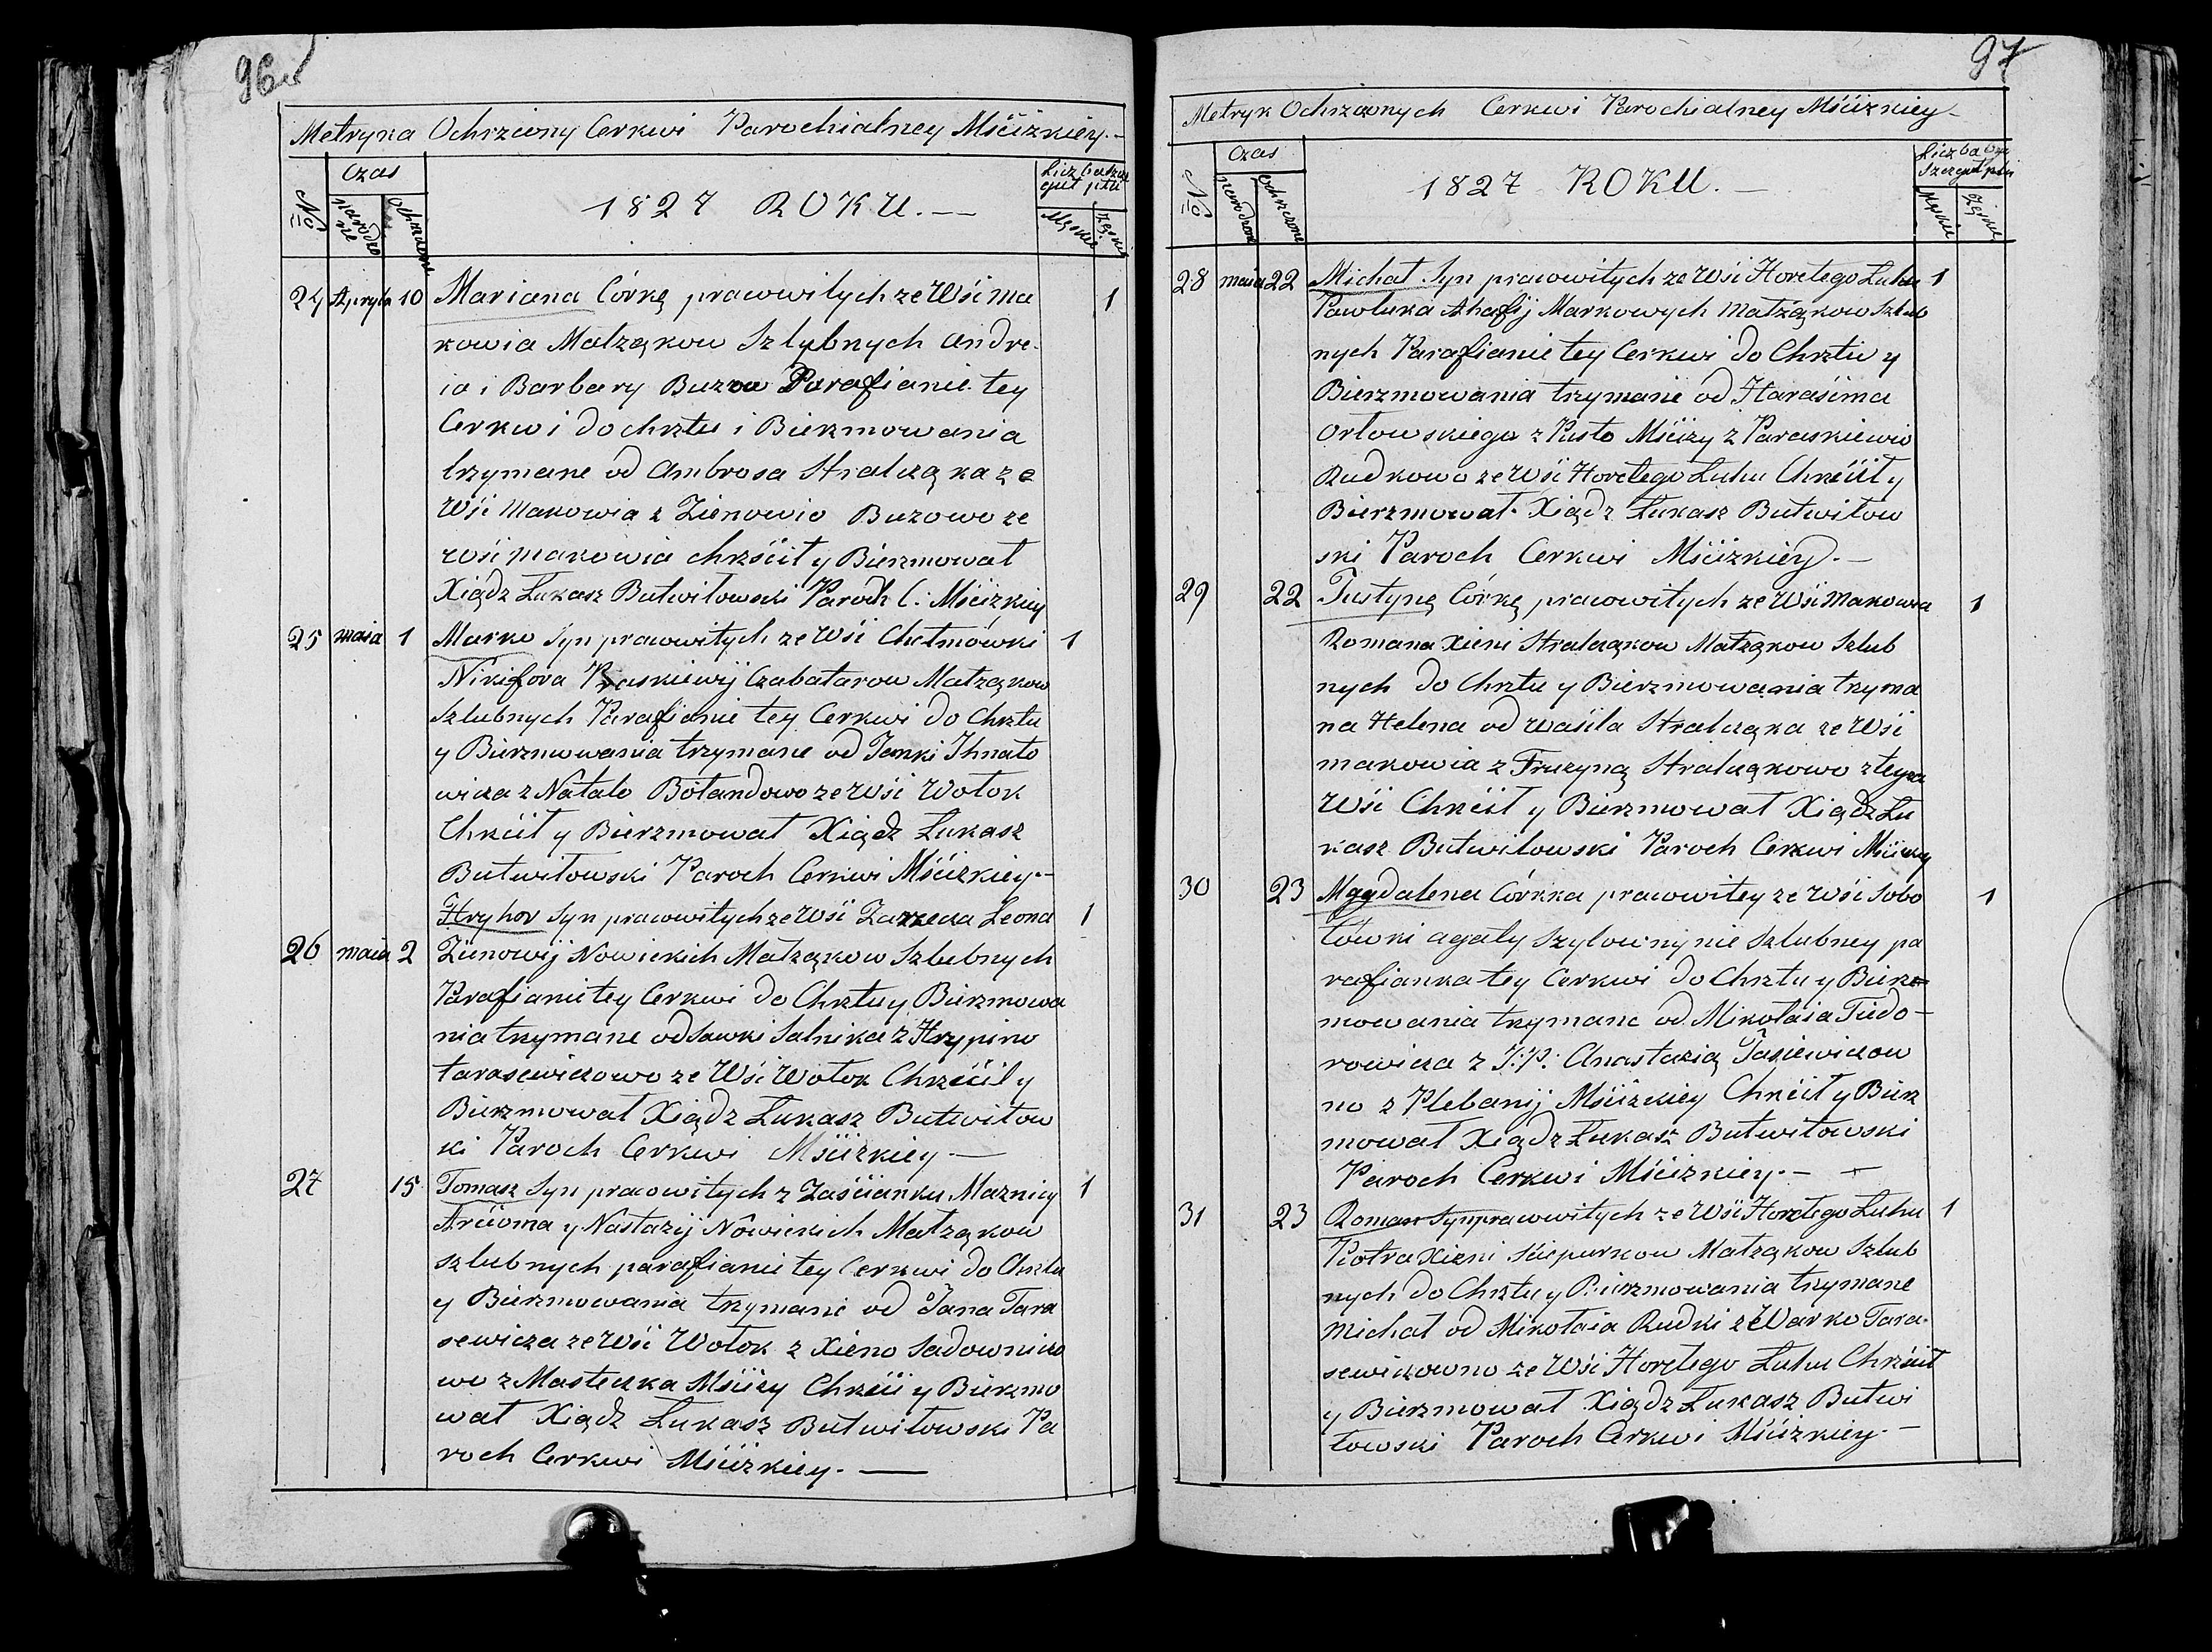 96
Metryka Ochrzciony Cerkwi Parochialney Mścizkiey.-
No
Czas
narodzo
ne
Ochrzczone
1827 ROKU.-
Liczba szcze
guł płci
Męskiej
Żęskiej
24 Apryla 10 Mariana Córkę pracowitych ze Wśi Ma 1
kowia Małżąkow Szlubnych Andre
ia i Barbary Buzow Parafianie tey
Cerkwi do chrztu i Bierzmowania
trzymane od Ambrosa Stralcząka ze
Wśi Makowia z Zienowio Buzowo ze
wśi Makowia chrzścił y Bierzmował
Xiądz Łukasz Butwiłowski Paroch C: Mścizkiey
25 maia 1 Marko Syn pracowitych ze Wśi Chełmówki 1
Nikifora Praskiewij Czabatarow Małżąkow
Szlubnych Parafianie tey Cerkwi do Chrztu
y Bierzmowania trzymane od Jemki Ihnato
wicza z Natalo Bołandowo ze Wśi Wołok
Chrzcił y Bierzmował Xiądz Łukasz
Butwiłowski Paroch Cerkwi Mścizkiey.-
Hryhor Syn pracowitych ze Wśi Zarzecza Leona 1
26 maia 2 Zienowij Nowickich Małżąkow Szlubnych
Parafianie tey Cerkwi do Chrztu y Bierzmowa
nia trzymane od Sawki Salnika z Hrypino
tarasewiczowo ze Wśi Wołok Chrzcił y
Bierzmował Xiądz Łukasz Butwiłow
ki Paroch Cerkwi Mścizkiey -
27 15 Tomasz Syn pracowitych z Zaścianku Maznicy 1
Arcioma y Nastazij Nowickich Małżąkow
szlubnych parafianie tey Cerkwi do Chrztu
y Bierzmowania trzymanie od Jana Tara
sewicza ze Wśi Wołok z Xieno Sadownico
wo z Masteczka Mściży Chrzcił y Bierzmo
wał Xiądz Łukasz Butwiłowski Pa
roch Cerkwi Mścizkiey. -
97
Metryk Ochrzczonych Cerkwi Parochialney Mścizkiey-
No
Czas
narodzone
ochrzczone
1827 ROKU.-
Liczba
Szczeguł płci
Męskiej
Żęskiej
28 maia 22 Michał Syn pracowitych ze Wśi Horełego Łuhu 1
Pawluka Ahafij Markowych Małżąkow Szlub
nych Parafianie tey Cerkwi do Chrztu y
Bierzmowania trzymanie od Haraśima
Orłowskiego z Pusto Mściży z Paraskiewio
Rudkowo ze Wśi Horełego Łuhu Chrzcił y
Bierzmował. Xiądz Łukasz Butwiłow
ski Paroch Cerkwi Mścizkiey.-
29 22 Justynę Córkę pracowitych ze Wśi Makowia 1
Romana Xieni Stralcząkow Małżąkow Szlub
nych do Chrztu y Bierzmowania trzyma
na Helena od Waśila Stralcząka ze Wśi
makowia z Fruzyną Stralcząkowo z teyże
Wśi Chrzcił y Bierzmował Xiądz Łu
kasz Butwiłowski Paroch Cerkwi Mścizkiey
30 23 Magdalena Córkka pracowitey ze Wśi Sobo 1
łówki agaty Szyłowny nie Szlubney pa
rafianka tey Cerkwi do Chrztu y Bierz=
mowania trzymane od Mikołaia Tiedo-
rowicza z J:P: Anastazią Jasiewiczow
no z Plebanij Mścizkiey Chrzcił y Bierz
mował Xiądz Łukasz Butwiłowski
Paroch Cerkwi Mścizkiey.-
31 23 Roman Syn pracowitych ze Wśi Horełego Łuhu 1
Piotra Xieni Ściepurkow Małżąkow Szlub
nych do Chrztu y Bierzmowania trzymane
Michał od Mikołaia Rudki z Warko Tara-
sewiczowno ze Wśi Horełego Łuhu Chrzcił
y Bierzmował Xiądz Łukasz Butwi
łowski Paroch Cerkwi Mścizkiey.-